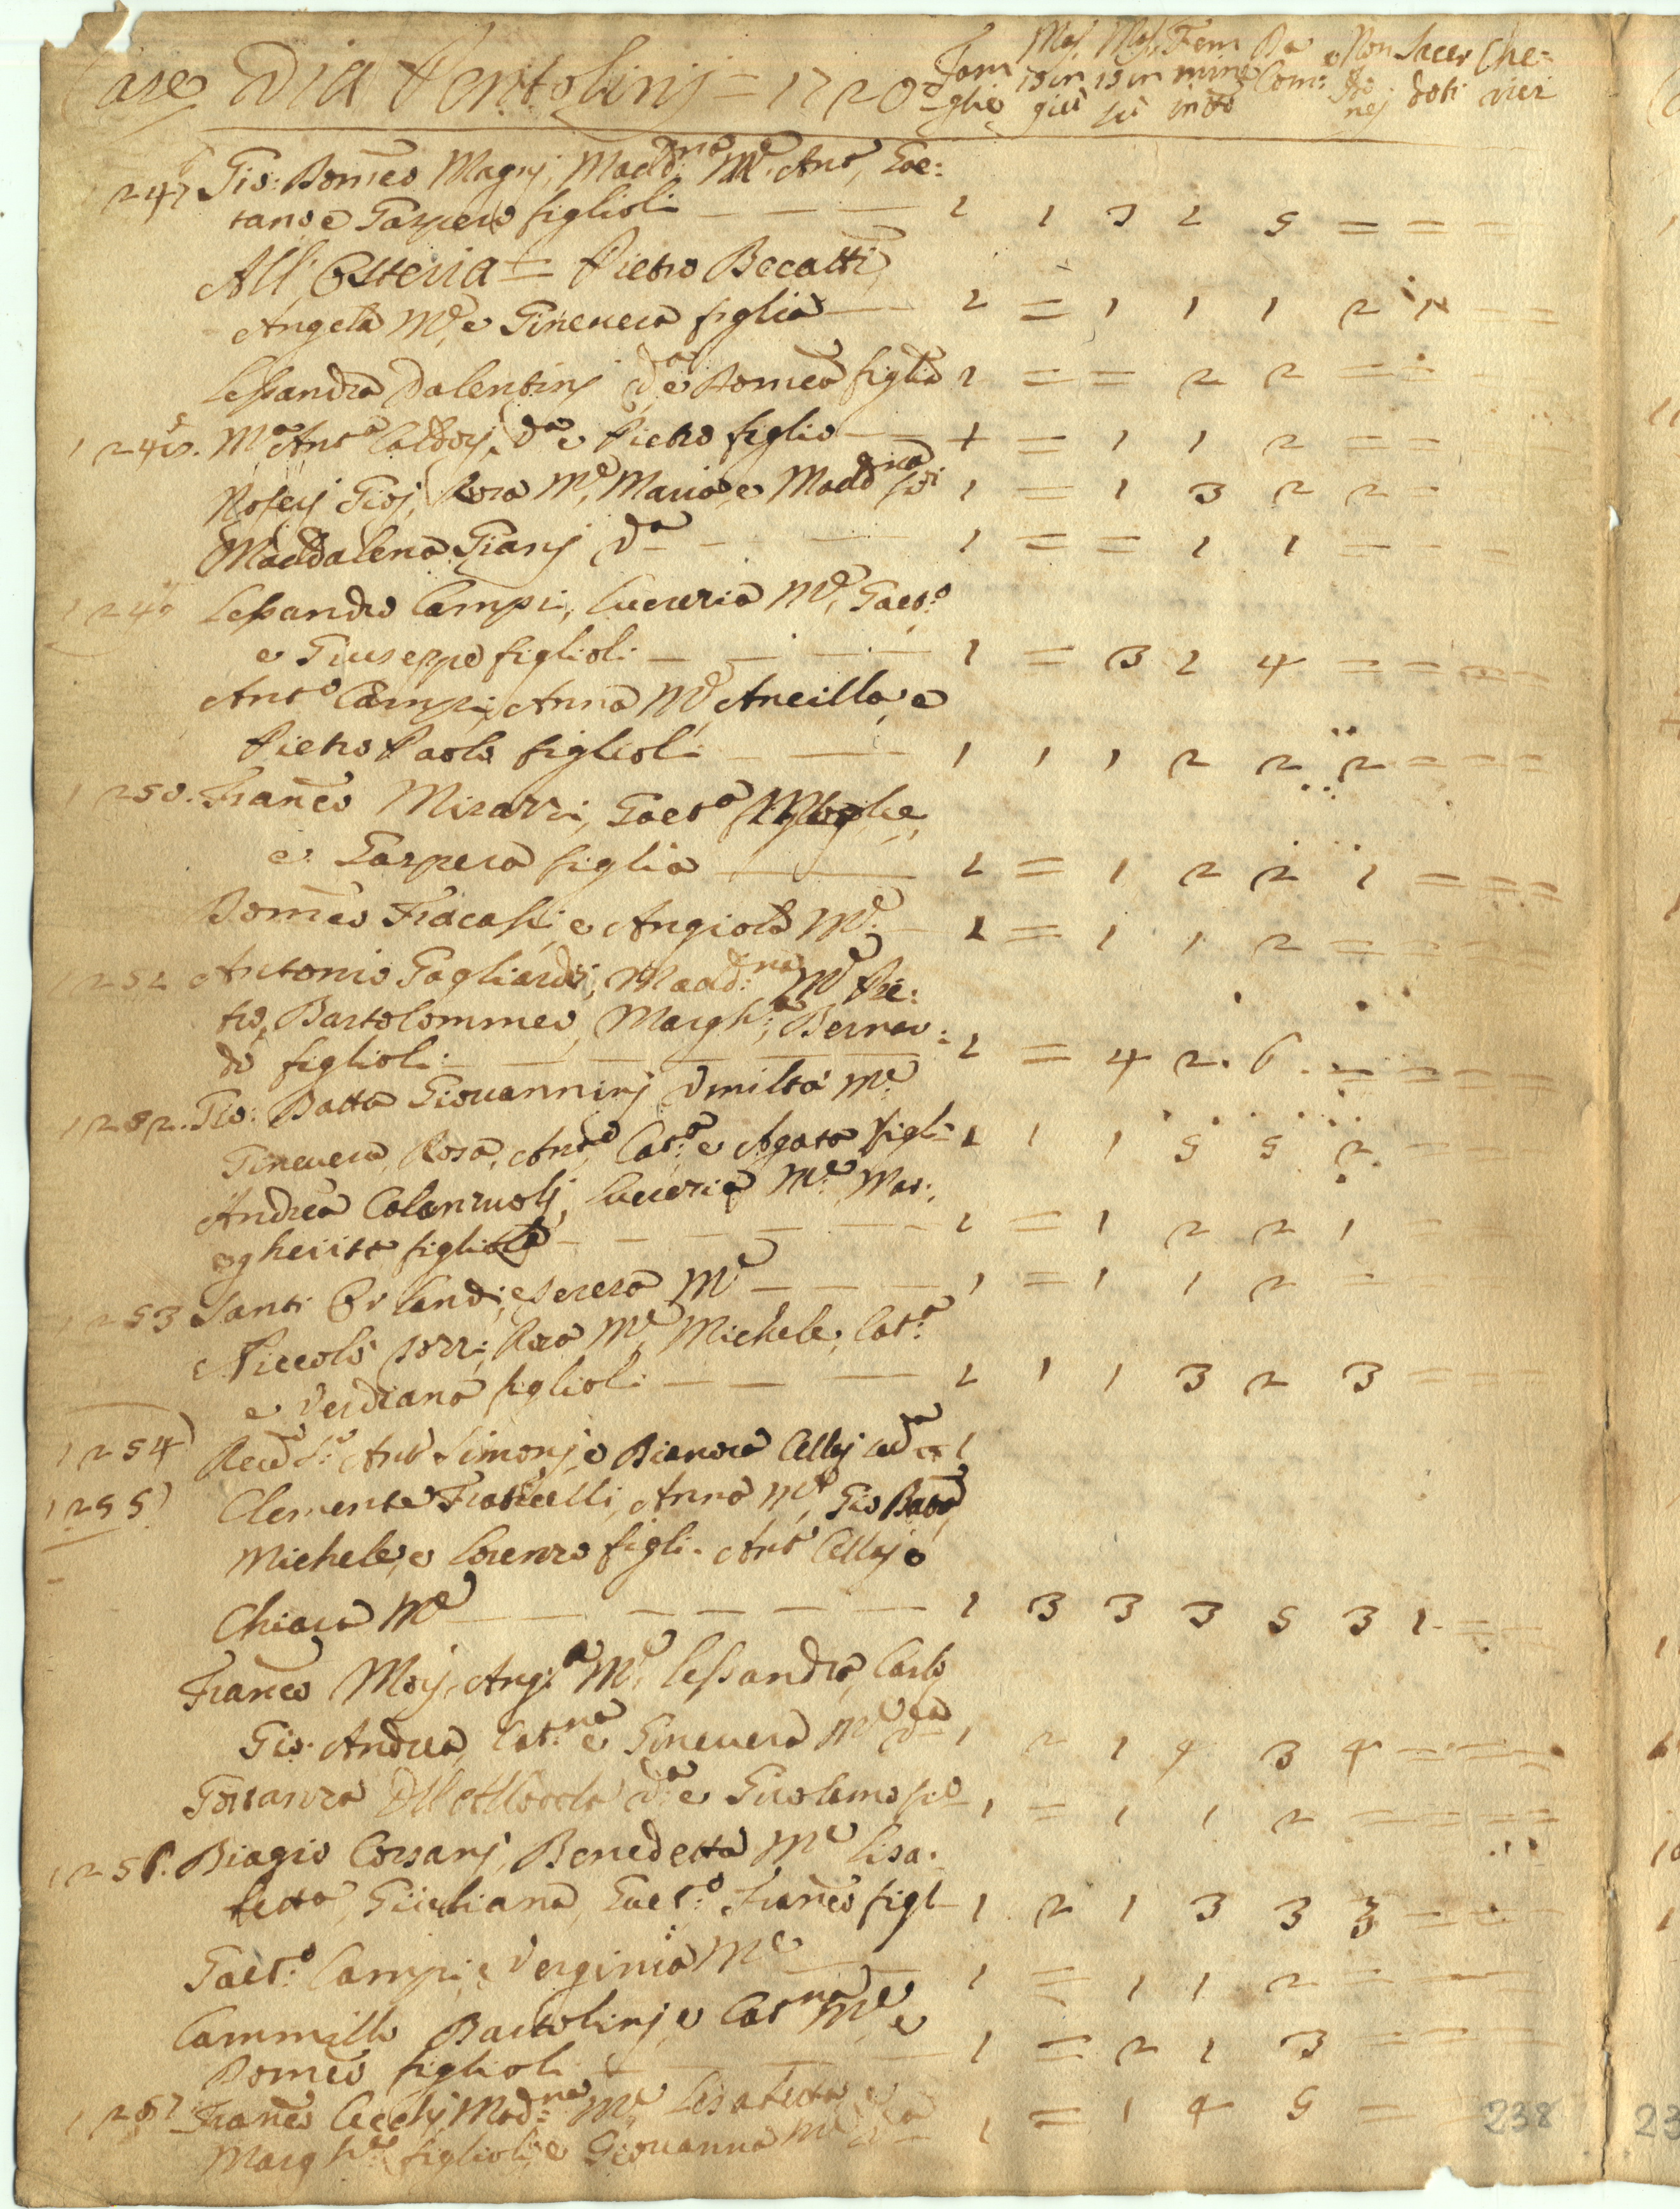 Case Via Ventolinj = 1720
Fam: Mas. Mas. Fem Da e Non Sacer Che=
iglie 15 in 15 in mine Com: Co doti rici
giù sù in tto nej
247 Gio: Domco Magnj, Madd.na Me. Anto, Gae:
tano e Gaspero figlioli — — — 1 1 3 2 5 = = =
All' Osteria = Pietro Becatti,
Angela Me, e Gineuera figlia — 1 = 1 1 1 2 = =
Lessandra Valentinj Va e Domca figlia 1 = = 2 2 = =
1248. Ma Anta Va e Pietro figlio — 1 = 1 1 2 = =
Rosa Me, Maria, e Madd.na 1 = 1 3 2 2
Maddalena Gianj Va — — 1 = = 1 1 = =
1249 Lessandro Campi, Lucrezia Me, Gaet.o
e Giuseppe figlioli — — — 1 = 3 1 4 = = =
Anto Campi, Anna Me, Ancilla, e
Pietro Paolo figlioli — — 1 1 1 2 2 2 = = =
1250. Franco Gaeta Moglie,
e Gaspera figlia — 1 = 1 2 2 1 = = =
Domco Fracassi, e Angiola Me. — 1 = 1 1 2 = = = =
1251 Antonio Gagliardi, Madd.na Me Pie:
tro, Bartolommeo, Margh.a, Bernar:
do figlioli — — — — 1 = 4 2. 6. = = = =
1252. Gio: Batta Giouanninj Vmiltà Me
Gineuera, Rosa, Anto, Cat.a e Agata figli 1 1 1 5 5 2. = =
Andrea Lucrezia Me Mar:
gherita figliola — — — — 1 = 1 2 2 1 = =
1253 Santi Orlandi, e Teresa Me — — — 1 = 1 1 2 =
Niccolò Rosa Me, Michele, Cat.a
e Verdiana figlioli — — — 1 1 1 3 2 3 = =
1254 Reud S.e Anto Simonj, e Cellaj 1
1255 Clemente Fraticelli, Anna Me, Gio Batta
Michele, e Lorenzo figli. Anto Cellaj e
Chiara Me — — — — — 1 3 3 3 5 3 1. = =
Franco Ang.a Me, Lessandra, Carlo
Gio: Andrea, Cat.na e Gineuera Me Va 1 2 1 4 3 4 = = =
Costanza Va e Girolamo 1 = 1 1 2 = = = =
1256. Biagio Corsanj, Benedetta Me Lisa:
betta, Giuliana, Gaet.o, Franco figl 1 2 1 3 3 3 = = =
Gaet.o Campi e Verginia Me — 1 = 1 1 2 = =
Cammillo Bartolinj e Cat.na Me e
Domco figlioli — 1 = 2 1 3 = = =
1257 Franco Cecchj Mad.na Me Lisabetta, e
Margh.ta figlioli, e Giouanna Me Va 1 = 1 4 5 =
238